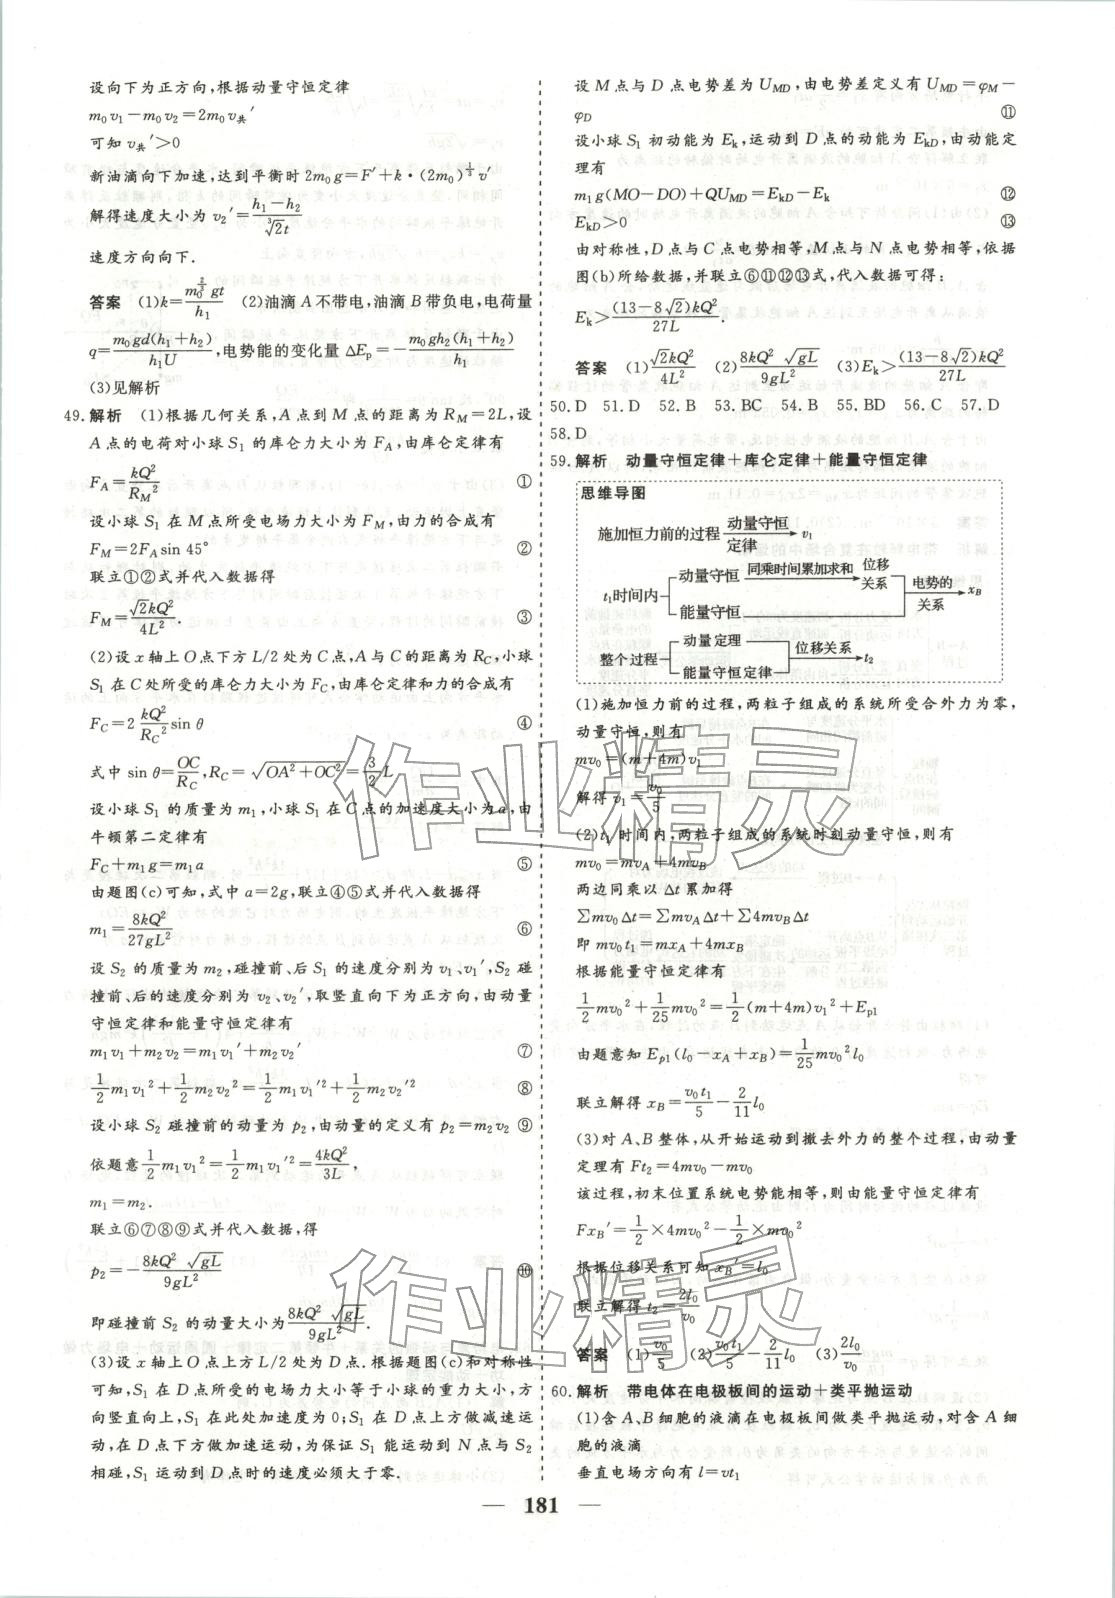 设向下为正方向,根据动量守恒定律
m₀v₁－m₀v₂＝2m₀v共′
可知 v共′＞0
新油滴向下加速,达到平衡时 2m₀g＝F′＋k·(2m₀)^(1/3) v′
解得速度大小为 v₂′＝(h₁－h₂)/(∛2 t)
速度方向向下.
答案 (1)k＝m₀^(2/3)gt/h₁ (2)油滴 A 不带电,油滴 B 带负电,电荷量
q＝m₀gd(h₁＋h₂)/(h₁U),电势能的变化量 ΔEp＝－m₀gh₂(h₁＋h₂)/h₁
(3)见解析
49. 解析 (1)根据几何关系,A 点到 M 点的距离为 R_M＝2L,设
A 点的电荷对小球 S₁ 的库仑力大小为 F_A,由库仑定律有
F_A＝kQ²/R_M² ①
设小球 S₁ 在 M 点所受电场力大小为 F_M,由力的合成有
F_M＝2F_A sin 45° ②
联立①②式并代入数据得
F_M＝√2kQ²/4L². ③
(2)设 x 轴上 O 点下方 L/2 处为 C 点,A 与 C 的距离为 R_C,小球
S₁ 在 C 处所受的库仑力大小为 F_C,由库仑定律和力的合成有
F_C＝2 kQ²/R_C² sin θ ④
式中 sin θ＝OC/R_C,R_C＝√(OA²＋OC²)＝(3/2)L
设小球 S₁ 的质量为 m₁,小球 S₁ 在 C 点的加速度大小为 a,由
牛顿第二定律有
F_C＋m₁g＝m₁a ⑤
由题图(c)可知,式中 a＝2g,联立④⑤式并代入数据得
m₁＝8kQ²/27gL² ⑥
设 S₂ 的质量为 m₂,碰撞前、后 S₁ 的速度分别为 v₁、v₁′,S₂ 碰
撞前、后的速度分别为 v₂、v₂′,取竖直向下为正方向,由动量
守恒定律和能量守恒定律有
m₁v₁＋m₂v₂＝m₁v₁′＋m₂v₂′ ⑦
½m₁v₁²＋½m₂v₂²＝½m₁v₁′²＋½m₂v₂′² ⑧
设小球 S₂ 碰撞前的动量为 p₂,由动量的定义有 p₂＝m₂v₂ ⑨
依题意½m₁v₁²－½m₁v₁′²＝4kQ²/3L,
m₁＝m₂.
联立⑥⑦⑧⑨式并代入数据,得
p₂＝－8kQ²√gL/9gL² ⑩
即碰撞前 S₂ 的动量大小为8kQ²√gL/9gL².
(3)设 x 轴上 O 点上方 L/2 处为 D 点.根据题图(c)和对称性
可知,S₁ 在 D 点所受的电场力大小等于小球的重力大小,方
向竖直向上,S₁ 在此处加速度为 0;S₁ 在 D 点上方做减速运
动,在 D 点下方做加速运动,为保证 S₁ 能运动到 N 点与 S₂
相碰,S₁ 运动到 D 点时的速度必须大于零.
设 M 点与 D 点电势差为 U_MD,由电势差定义有 U_MD＝φ_M－
φ_D ⑪
设小球 S₁ 初动能为 E_k,运动到 D 点的动能为 E_kD,由动能定
理有
m₁g(MO－DO)＋QU_MD＝E_kD－E_k ⑫
E_kD＞0 ⑬
由对称性,D 点与 C 点电势相等,M 点与 N 点电势相等,依据
图(b)所给数据,并联立⑥⑪⑫⑬式,代入数据可得:
E_k＞(13－8√2)kQ²/27L.
答案 (1)√2kQ²/4L² (2)8kQ²√gL/9gL² (3)E_k＞(13－8√2)kQ²/27L
50. D 51. D 52. B 53. BC 54. B 55. BD 56. C 57. D
58. D
59. 解析 动量守恒定律＋库仑定律＋能量守恒定律
思维导图
施加恒力前的过程 动量守恒定律 v₁
t₁时间内 动量守恒 同乘时间累加求和 位移关系 电势的关系 x_B
能量守恒
整个过程 动量定理 位移关系 t₂
能量守恒定律
(1)施加恒力前的过程,两粒子组成的系统所受合外力为零,
动量守恒,则有
mv₀＝(m＋4m)v₁
解得 v₁＝v₀/5
(2)t₁ 时间内,两粒子组成的系统时刻动量守恒,则有
mv₀＝mv_A＋4mv_B
两边同乘以 Δt 累加得
∑mv₀Δt＝∑mv_AΔt＋∑4mv_BΔt
即 mv₀t₁＝mx_A＋4mx_B
根据能量守恒定律有
½mv₀²＋(1/25)mv₀²＝½(m＋4m)v₁²＋E_p1
由题意知 E_p1(l₀－x_A＋x_B)＝(1/25)mv₀²l₀
联立解得 x_B＝v₀t₁/5－(2/11)l₀
(3)对 A、B 整体,从开始运动到撤去外力的整个过程,由动量
定理有 Ft₂＝4mv₀－mv₀
该过程,初末位置系统电势能相等,则由能量守恒定律有
Fx_B′＝½×4mv₀²－½×mv₀²
根据位移关系可知 x_B′＝l₀
联立解得 t₂＝2l₀/v₀
答案 (1)v₀/5 (2)v₀t₁/5－(2/11)l₀ (3)2l₀/v₀
60. 解析 带电体在电极板间的运动＋类平抛运动
(1)含 A、B 细胞的液滴在电极板间做类平抛运动,对含 A 细
胞的液滴
垂直电场方向有 l＝vt₁
— 181 —
作业精灵
作业精灵